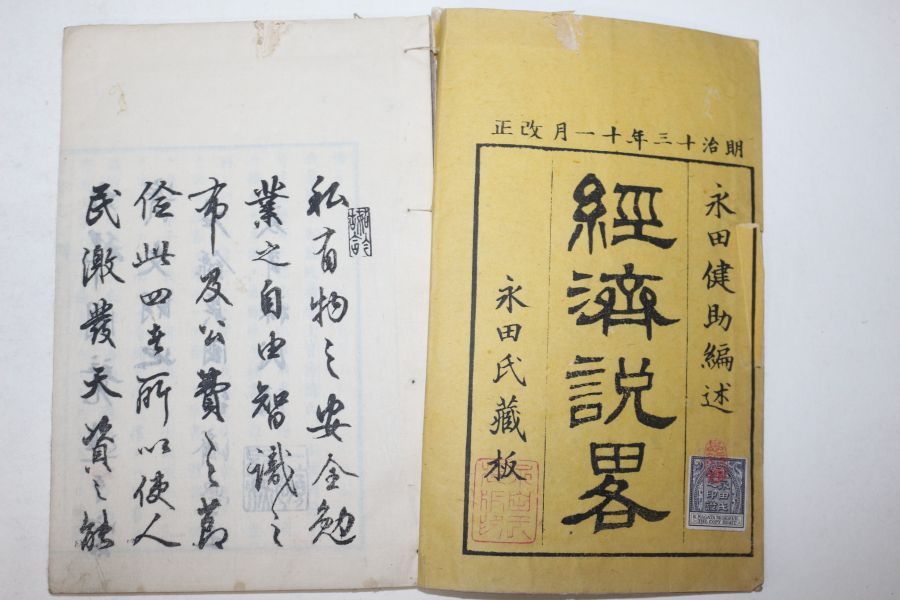 明治十三年十一月改正
永田健助編述
經濟説畧
永田氏藏板
私有物之安全勉
業之自由智識之
布及公費之節
倹此四者所以使人
民激發天資之能